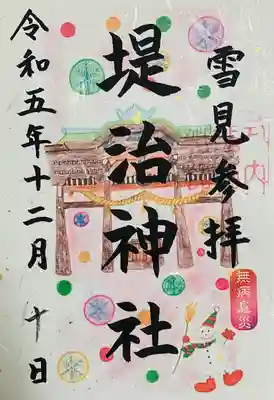 雪見参拝
堤治神社
令和五年十二月十日
無病息災